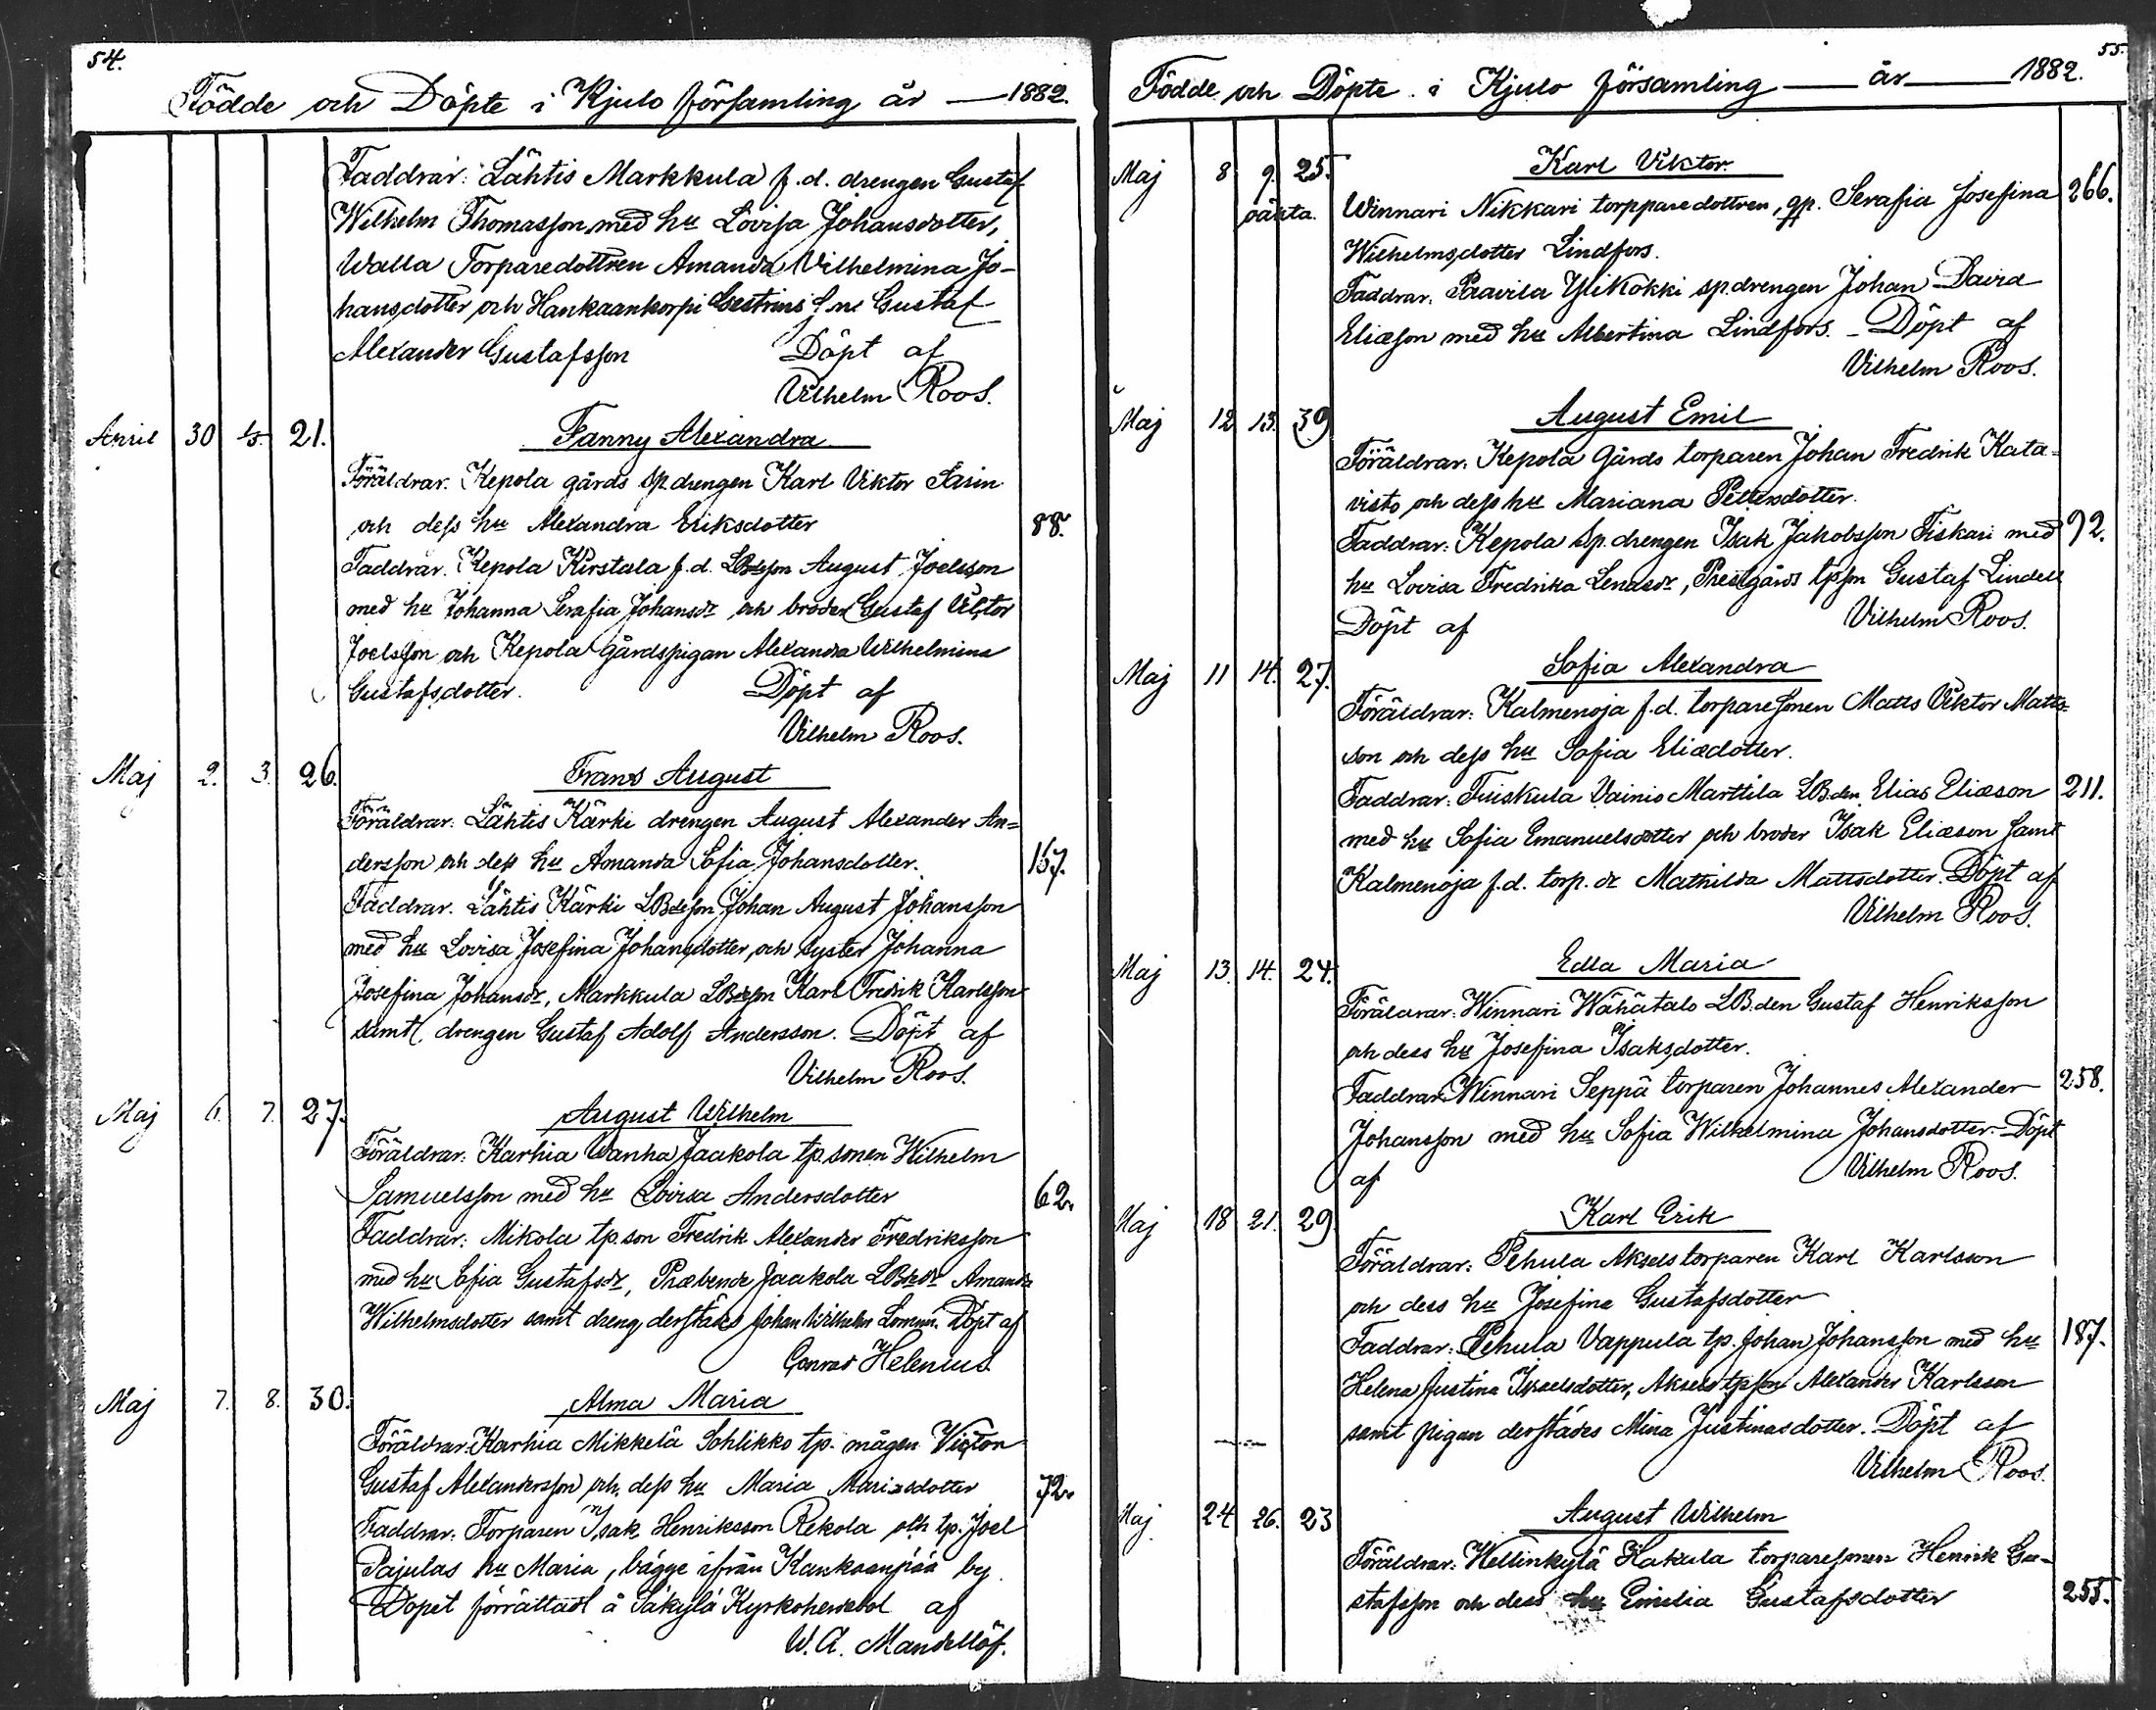 54.
Födde och Döpte i Kjulo församling år — 1882.
Faddrar: Lähtis Markkula f.d. drengen Gustaf
Wilhelm Thomasson med hu Lovisa Johansdotter,
Walla Torparedottren Amanda Vilhelmina Jo-
hansdotter och Hankaankorpi Gustaf
Alexander Gustafsson Döpt af
Vilhelm Roos.
April 30 1/5 21. Fanny Alexandra
Föräldrar: Kepola gårds sp.drengen Karl Viktor
och dess hu Alexandra Eriksdotter 88.
Faddrar: Kepola Kirstala f.d. LBdeson August Joelsson
med hu Johanna Serafia Johansdr och broder Gustaf Victor
Joelsson och Kepola Gårdspigan Alexandra Wilhelmina
Gustafsdotter. Döpt af
Vilhelm Roos.
Maj 2. 3. 26. Frans August
Föräldrar: Lähtis Kärki drengen August Alexander An=
dersson och dess hu Amanda Sofia Johansdotter. 167.
Faddrar: Lähtis Kärki LBdeson Johan August Johansson
med hu Lovisa Josefina Johansdotter, och syster Johanna
Josefina Johansdr, Markkula LBdeson Karl Fredrik Karlsson
samt drengen Gustaf Adolf Andersson. Döpt af
Vilhelm Roos.
Maj 6. 7. 27. August Wilhelm
Föräldrar: Karhia Wanha Jaakola tp.sonen Wilhelm
Samuelsson med hu Lovisa Andersdotter 62.
Faddrar: Mikola tp.son Fredrik Alexander Fredriksson
med hu Sofia Gustafsdr, Præbende Jaakola LBdedr Amanda
Wilhelmsdotter samt dreng. derstädes Johan Wilhelm Döpt af
Conrad Helenius
Maj 7. 8. 30. Alma Maria
Föräldrar: Karhia Mikkelä Sohlikko tp. mågen Victor
Gustaf Alexandersson och dess hu Maria Mariasdotter 72.
Faddrar: Torparen Isak Henriksson Rekola och tp. Joel
Pajulas hu Maria, bägge ifrån Kankaanpää by.
Döpet förrättadt å Säkylä Kyrkoherdebol af
W. A. Mandellöf.
55.
Födde och Döpte i Kjulo församling — år — 1882.
Maj 8 9. 25. Karl Viktor
oäkta. Winnari Nikkari torpparedottren, qp. Serafia Josefina 266.
Wilhelmsdotter Lindfors.
Faddrar: Paavila Ylikokki sp.drengen Johan David
Eliæson med hu Albertina Lindfors. - Döpt af
Vilhelm Roos.
Maj 12 13. 39 August Emil
Föräldrar: Kepola Gårds torparen Johan Fredrik Kata-
visto och dess hu Mariana Pettersdotter.
Faddrar: Kepola sp.drengen Isak Jakobsson Fiskari med 92.
hu Lovisa Fredrika Lenasdr, Prestgårds tpson Gustaf Lindell
Döpt af Vilhelm Roos.
Maj 11 14. 27. Sofia Alexandra
Föräldrar: Kalmenoja f.d. torparesonen Matts Viktor Matts-
son och dess hu Sofia Eliædotter.
Faddrar: Tuiskula Vainio Marttila LB.den Elias Eliæson 211.
med hu Sofia Emanuelsdotter och broder Isak Eliæson samt
Kalmenoja f.d. torp. dr Mathilda Mattsdotter. Döpt af
Vilhelm Roos.
Maj 13. 14. 24. Edla Maria
Föräldrar: Winnari Wähätalo LB.den Gustaf Henriksson
och dess hu Josefina Isaksdotter.
Faddrar: Winnari Seppä torparen Johannes Alexander 258.
Johansson med hu Sofia Wilhelmina Johansdotter. Döpt
af Vilhelm Roos.
Maj 18 21. 29 Karl Erik
Föräldrar: Pehula Aksels torparen Karl Karlsson
och dess hu Josefina Gustafsdotter
Faddrar: Pehula Vappula tp. Johan Johansson med hu 187.
Helena Justina Israelsdotter, Aksels tpson Alexander Karlsson
samt pigan derstädes Mina Justinasdotter. Döpt af
Vilhelm Roos.
Maj 24 26. 23 August Wilhelm
Föräldrar: Wellinkylä Kakula torparesonen Henrik Gu-
stafsson och dess hu Emilia Gustafsdotter 255.